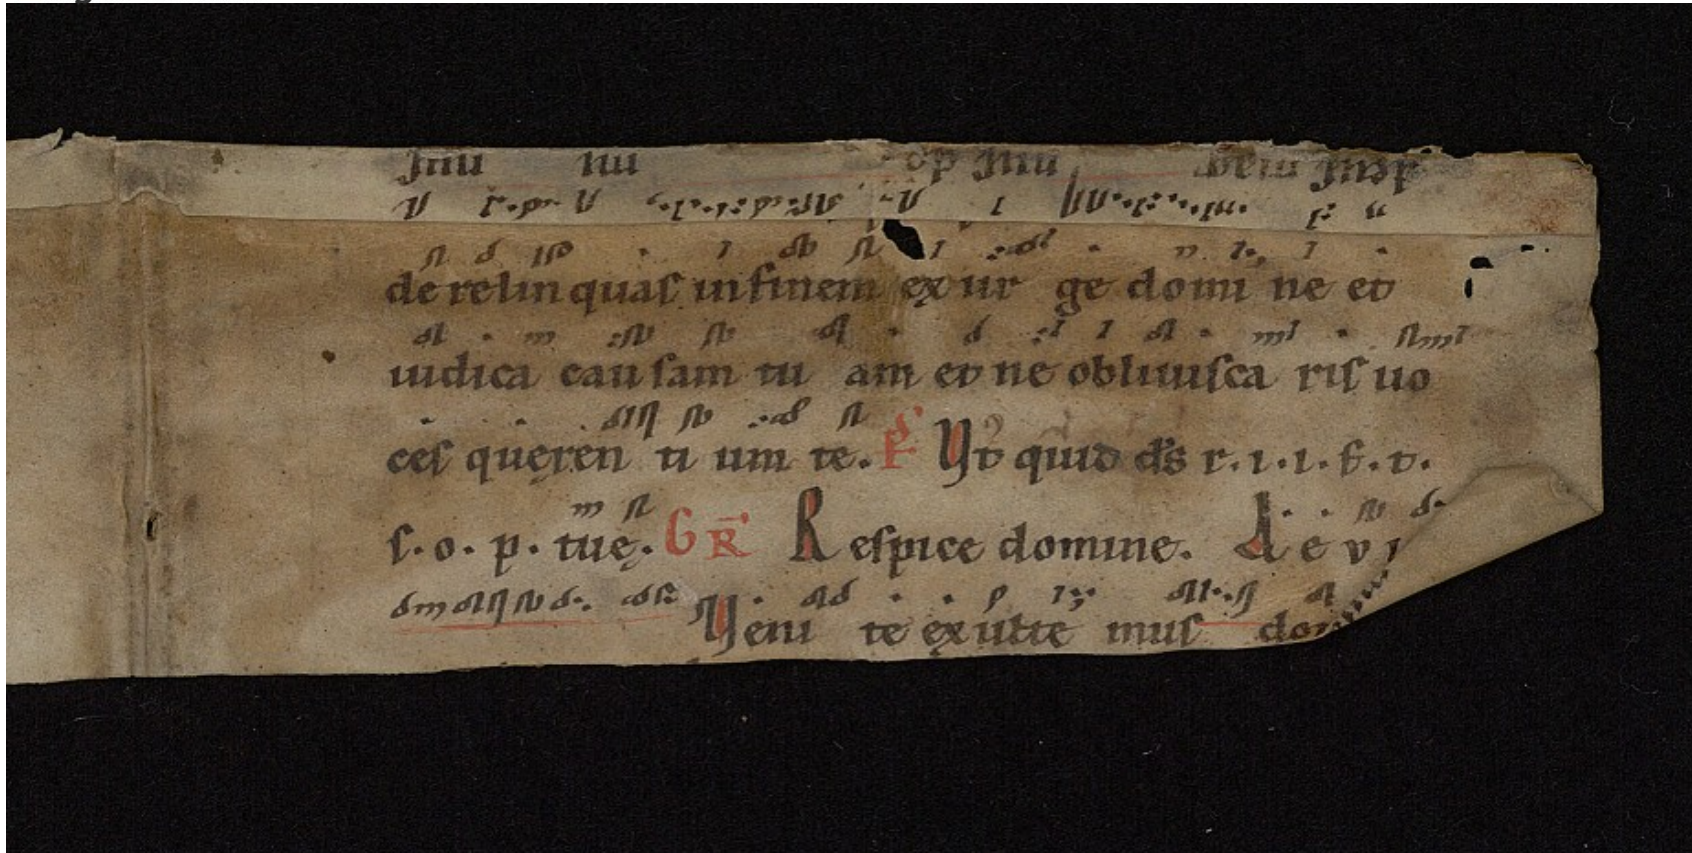 de relin quas in finem ex ur ge domi ne et
iudica cau sam tu am et ne obliuisca ris uo
ces quęren ti um te. Ps Vt quid ds r.i.i.f.t.
s.o.p.tuę. GR Respice domine. A e v i
Veni te exulte mus do